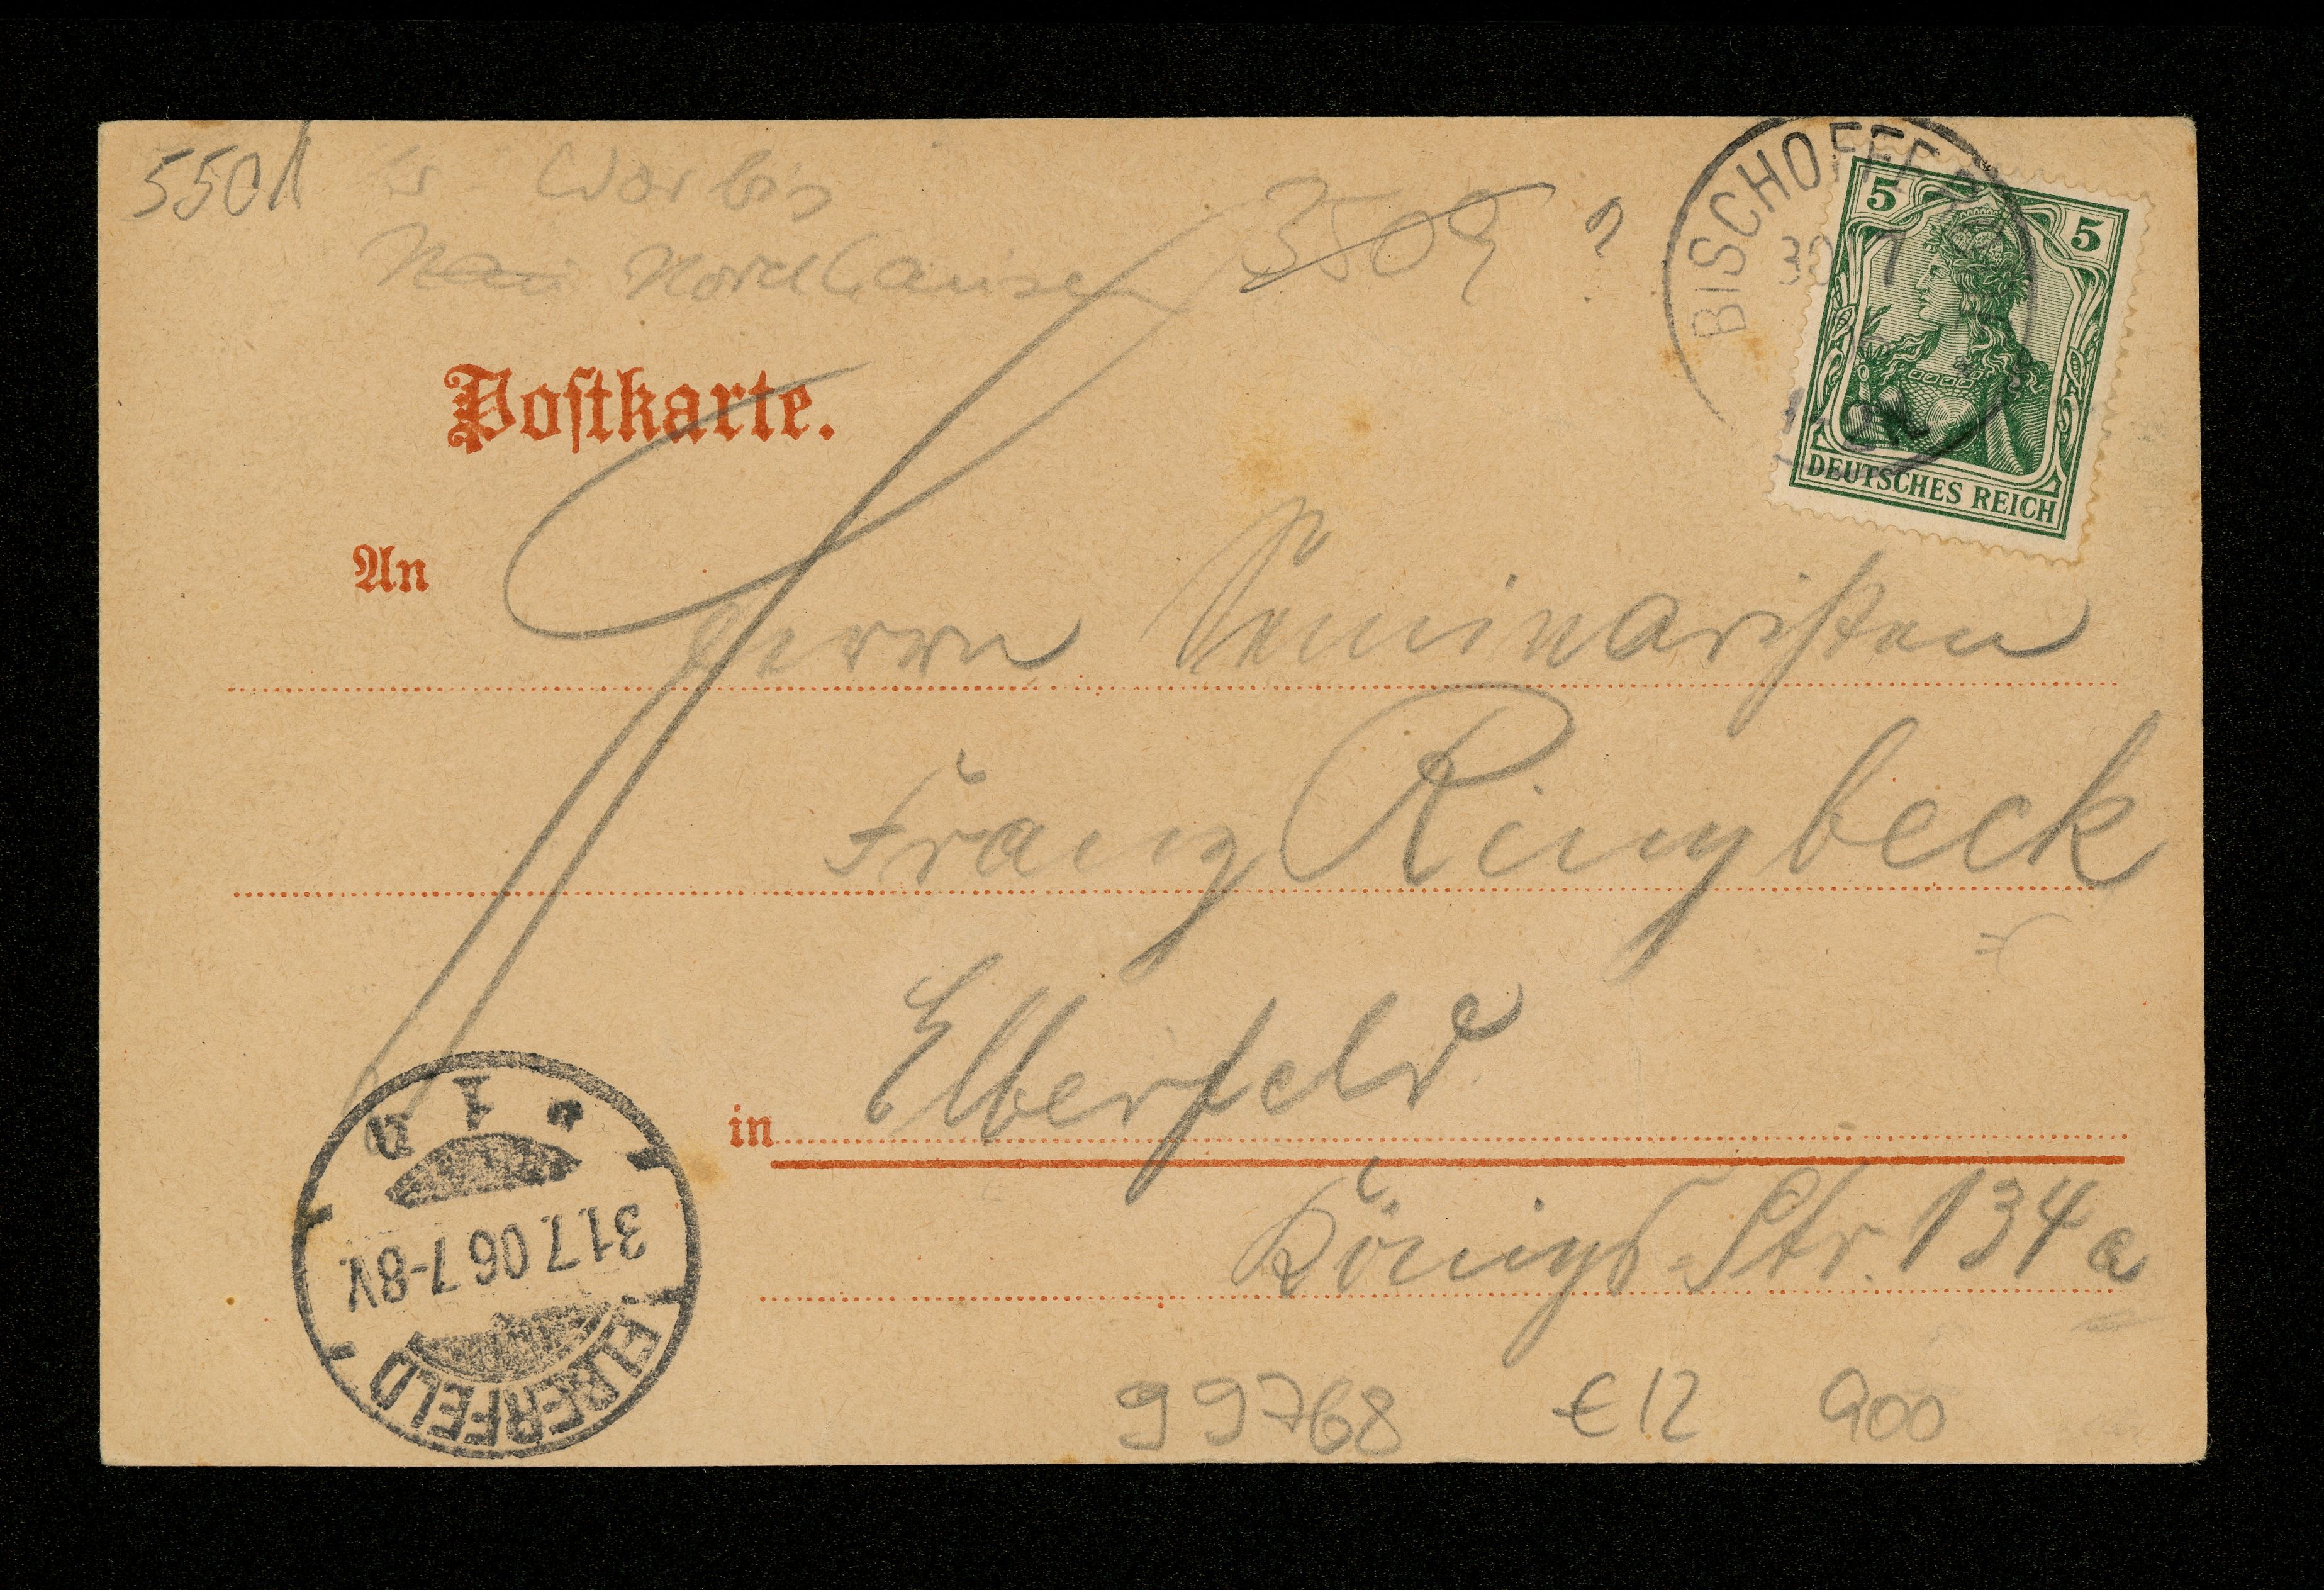 5501 Kr Worbis
Nordhausen 3509 ?
BISCHOFFERODE
30 7
5 5
DEUTSCHES REICH
Postkarte.
An
Herrn Seminaristen
Franz Ringbeck
in Elberfeld
Königs-Str. 134a
ELBERFELD
31.7.06 7-8V.
* 1 n
99768 € 12 900